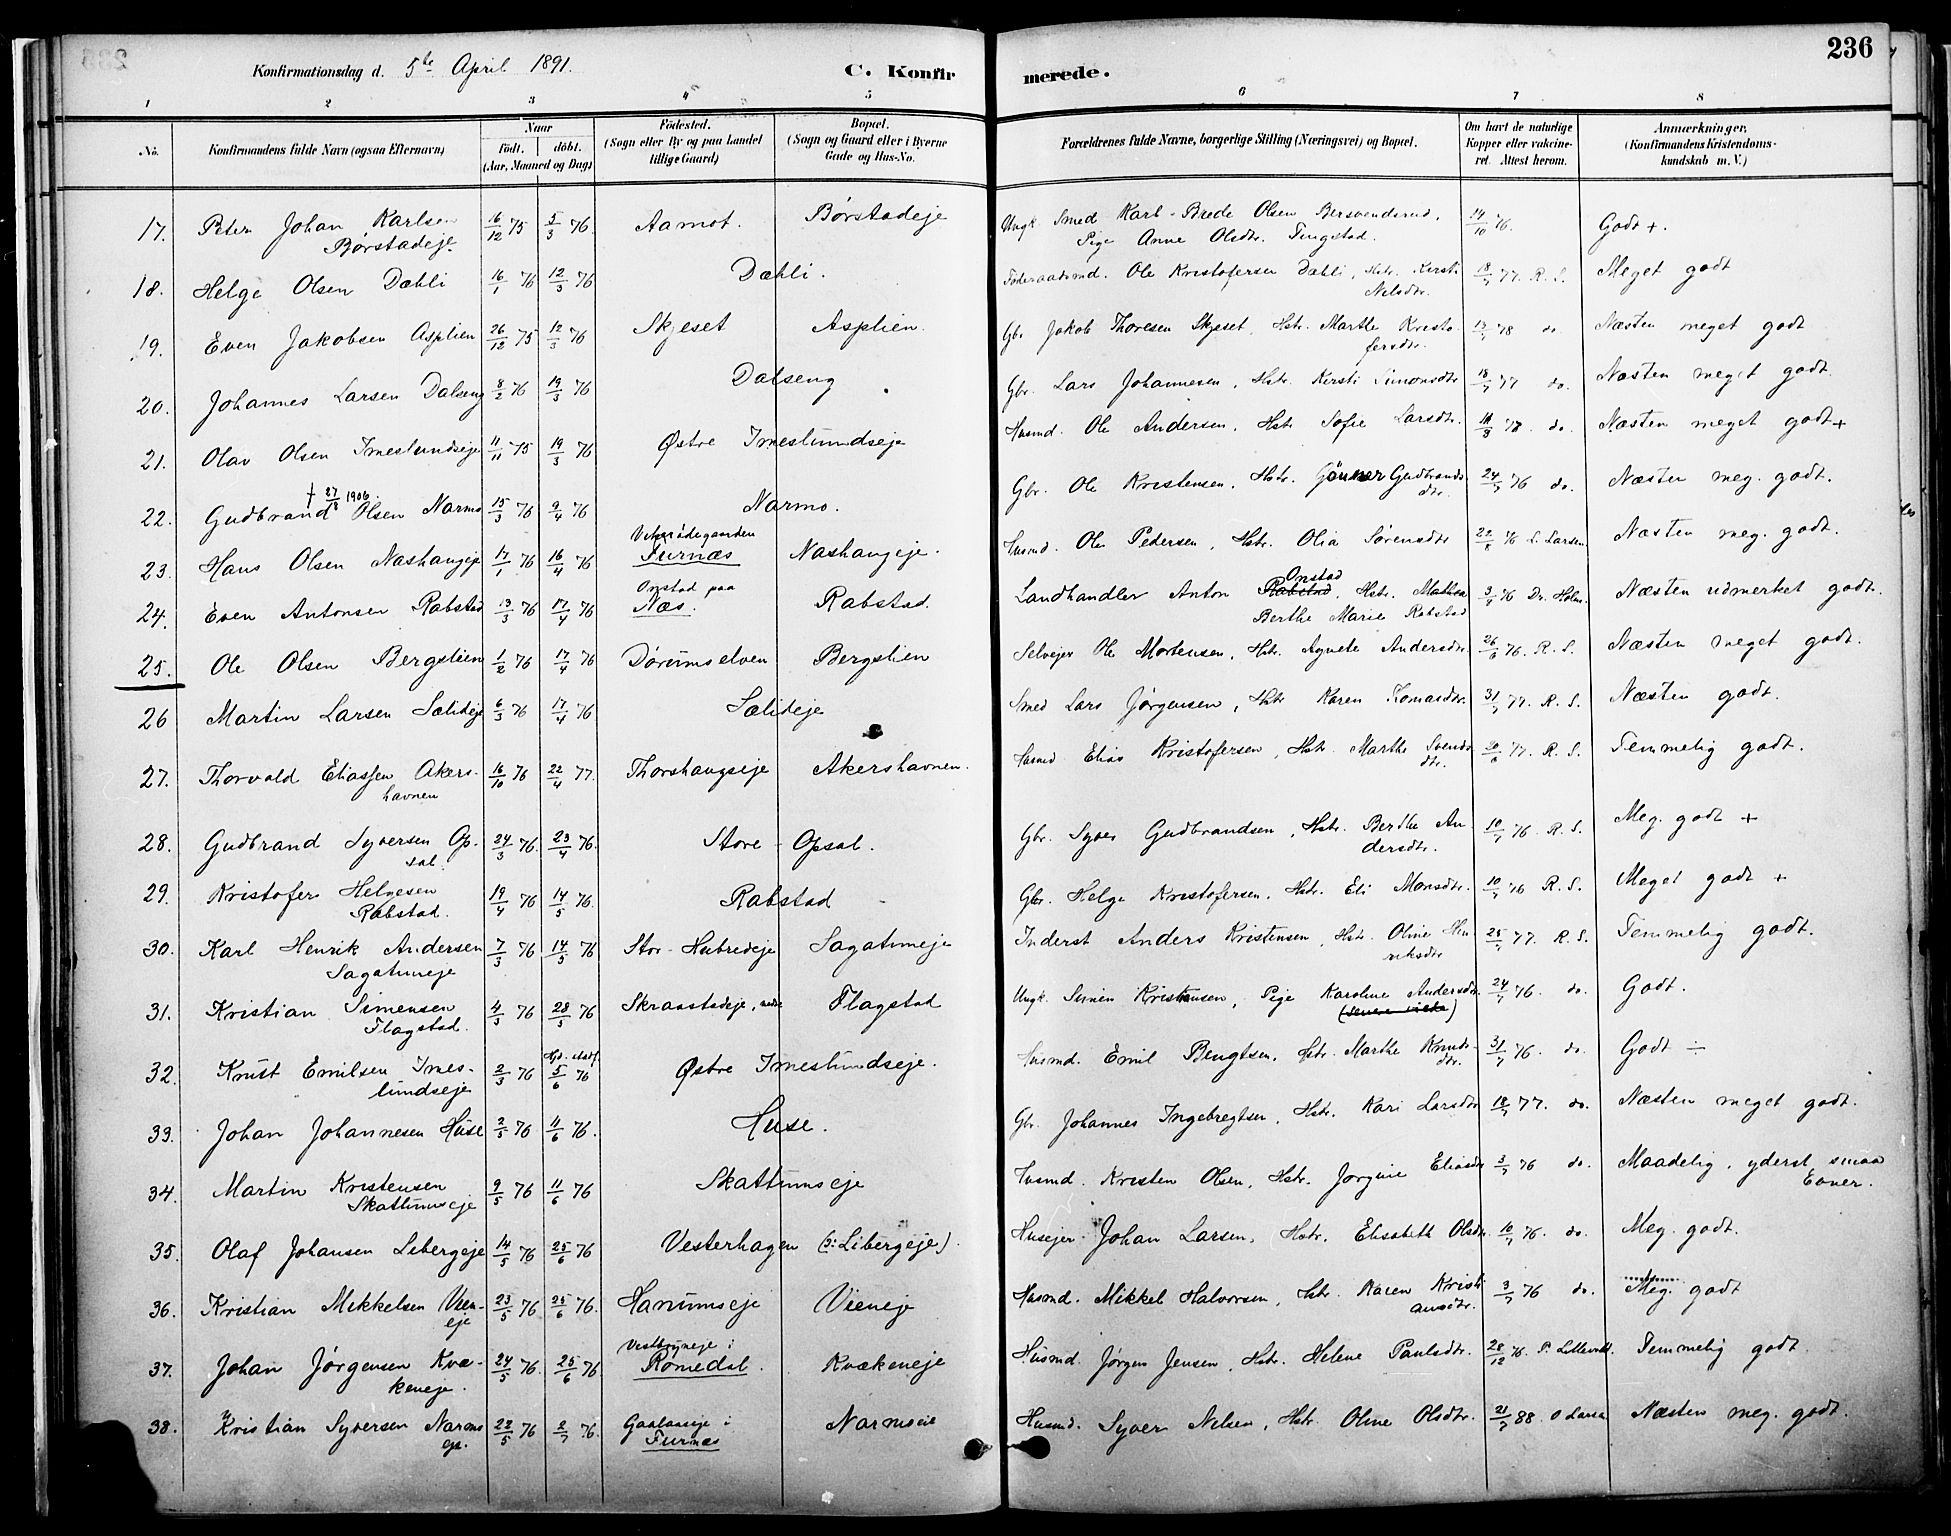 236
Konfirmationsdag d. 5te April 1891.
C. Konfirmerede.
1 2 3 4 5 6 7 8
No. Konfirmandens fulde Navn (ogsaa Efternavn) Naar født. døbt. (Aar, Maaned og Dag) Fødested. (Sogn eller By og paa Landet tillige Gaard) Bopæl. (Sogn og Gaard eller i Byerne Gade og Hus-No. Forældrenes fulde Navne, borgerlige Stilling (Næringsvei) og Bopæl. Om havt de naturlige Kopper eller vakcineret. Attest herom. Anmærkninger. (Konfirmandens Kristendomskundskab m. V.)
17. Peter Johan Karlsen Børstadeje 16/12 75 5/3 76 Aamot. Børstadeje Ungk. Smed Karl Brede Olsen Bersvendsrud, Pige Anne Olsdtr. Tingstad. 14/10 76. Godt +.
18. Helge Olsen Dæhli 16/1 76 12/3 76 Dæhli. Føderaadsmd. Ole Kristofersen Dæhli, Hstr. Kersti Nilsdtr. 18/7 77. R. S. Meget godt
19. Even Jakobsen Asplien 26/12 75 12/3 76 Skjeset Asplien. Gbr. Jakob Thoresen Skjeset, Hstr. Marthe Kristofersdtr. 78 do Næsten meget godt
20. Johannes Larsen Dalseng 8/2 76 19/3 76 Dalseng Gbr. Lars Johannesen, Hstr. Kersti Simonsdtr 18/7 77 do. Næsten meget godt.
21. Olav Olsen Imeslundseje 11/11 75 19/3 76 Østre Imeslundseje Husmd. Ole Andersen, Hstr Sofie Larsdtr. do. Næsten meget godt +
22. Gudbrand Olsen Narmo 15/3 76 9/4 76 Narmo. Gbr. Ole Kristensen, Hstr. Gudbrandsdtr. 24/7 76 do. Næsten meg. godt.
† 27/8 1906.
23. Hans Olsen Nashaugeje 17/1 76 16/4 76 Furnæs Nashaugeje. Husmd. Ole Pedersen, Hstr. Olia Sørensdtr 22/8 76 L. Larsen Næsten meg. godt.
24. Even Antonsen Rabstad 13/3 76 17/4 76 Onstad paa Næs. Rabstad. Landhandler Anton Rabstad Onstad, Hstr. Mathea Berthe Marie Rabstad 3/9 76 Dr. Holm. Næsten udmerket godt.
25. Ole Olsen Bergslien 1/2 76 17/4 76 Dørumselven Bergslien Selvejer Ole Mortensen, Hstr. Agnete Andersdtr. 26/6 76. R. S. Næsten meget godt.
26 Martin Larsen Sælideje 6/3 76 17/4 76 Sælideje Smed Lars Jørgensen, Hstr Karen Tomasdtr. 31/7 77. R. S. Næsten godt.
27. Thorvald Eliassen Akershavnen 16/10 76 22/4 77. Thorshaugseje Akershavnen. Husmd Elias Kristofersen, Hstr. Marthe Svendsdtr. 20/6 77. R. S. Temmelig godt.
28. Gudbrand Syversen Opsal. 24/3 76. 23/4 76. Store Opsal. Gbr. Syver Gudbrandsen, Hstr. Berthe Andersdtr. 10/7 76. R. S. Meg. godt +
29. Kristofer Helgesen Rabstad. 19/4 76 14/5 76. Rabstad Gbr. Helge Kristofersen, Hstr. Eli Monsdtr. 10/7 76 R. S. Meget godt +
30. Karl Henrik Andersen Sagatuneje 7/3 76 14/5 76 Stor-Hubredeje Sagatuneje Inderst Anders Kristensen, Hstr. Oline Henriksdtr 25/7 77. R. S. Temmelig godt.
31. Kristian Simensen Flagstad. 4/3 76 28/5 76 Skraastadeje, nedre Flagstad Ungk. Simen Kristiansen, Pige Karoline Andersdtr. 24/7 76. do. Godt.
32. Knut Emilsen Imeslundseje 2/3 76 5/6 76 Østre Imeslundseje. Husmd. Emil Bengtsen. Hstr. Marthe Knutsdtr. 31/7 76. do. Godt ÷
33. Johan Johannesen Huse 2/5 76 11/6 76. Huse. Gbr. Johannes Ingebregtsen, Hstr. Kari Larsdtr 18/7 77. do. Næsten meget godt.
34. Martin Kristensen Skattumseje 9/5 76 11/6 76 Skattumseje Husmd. Kristen Olsen, Hstr. Jørgine Eliasdtr 3/7 76 do. Maadelig, yderst smaa Evner.
35. Olaf Johansen Libergeje 14/5 76 25/6 76 Vesterhagen (ɔ: Libergeje). Husejer Johan Larsen, Hstr. Elisabeth Olsdtr 10/7 76. do. Meg. godt.
36. Kristian Mikkelsen Vieneje 23/5 76 25/6 76. Hanumseje Vieneje Husmd. Mikkel Halvorsen, Hstr. Karen Kristiansdtr. 3/7 76 do. Meg. godt
37. Johan Jørgensen Kvækeneje. 24/5 76. 25/6 76 Romedal. Kvækeneje Husmd. Jørgen Jensen, Hstr. Helene Paulsdtr. 28/12 76. Temmelig godt.
38. Kristian Syversen Narmoeje. 22/5 76 2/7 76. Gaalaaseje i Furnæs Narmoeie Husmd. Syver Nilsen, Hstr. Oline Olsdtr. 21/7 88. O Larsen Næsten meg. godt.